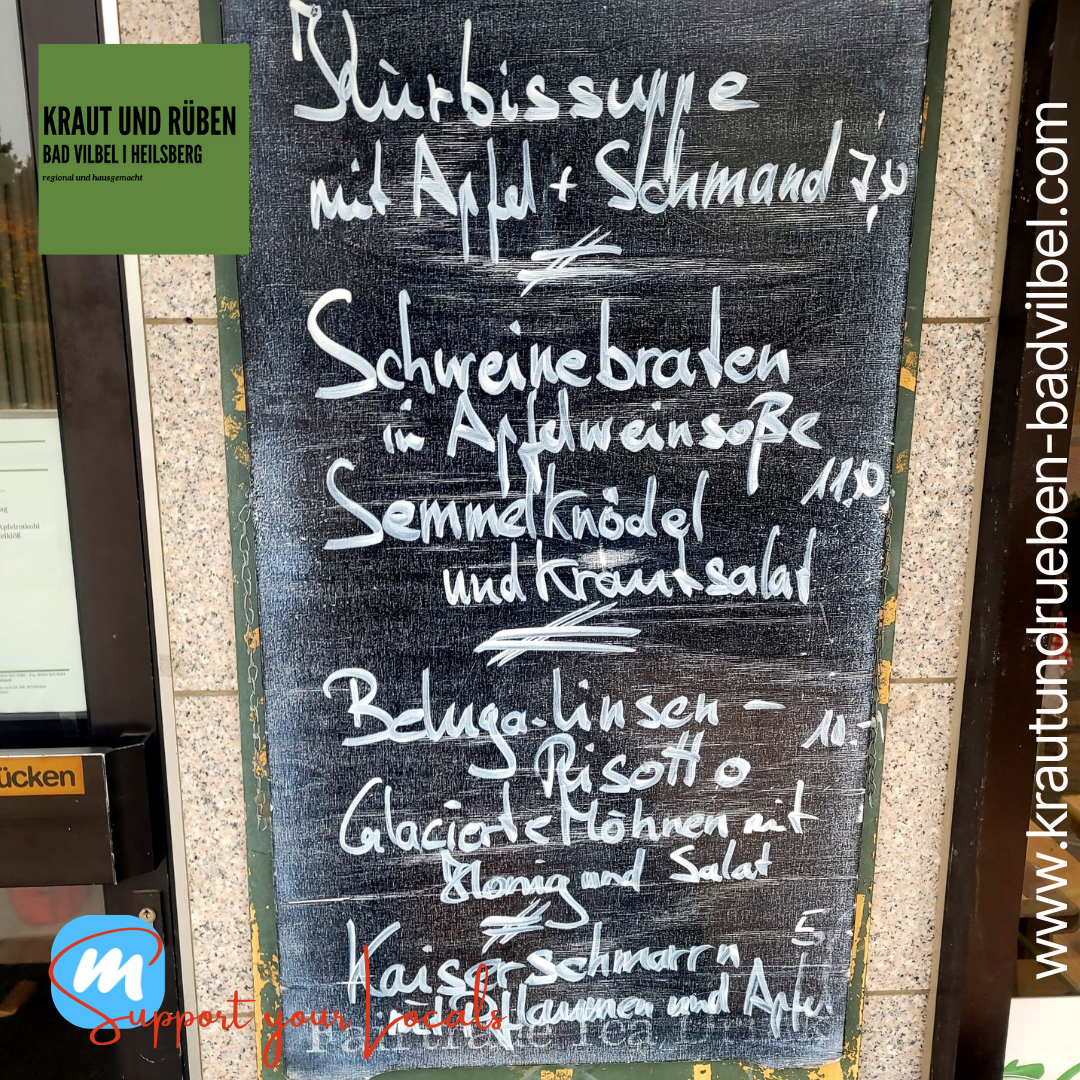 KRAUT UND RÜBEN
BAD VILBEL I HEILSBERG
regional und hausgemacht
Kürbissuppe
mit Apfel + Schmand
Schweinebraten
in Apfelweinsoße
11,50
Semmelknödel
und Krautsalat
Beluga-Linsen-
10.-
Risotto
Glacierte Möhnen mit
Honig und Salat
Kaiserschmarrn
5
mit Pflaumen und Apfel
Fairtrade Tea
www.krautundrueben-badvilbel.com
Apfelrotkohl
ücken
m
Support your Locals